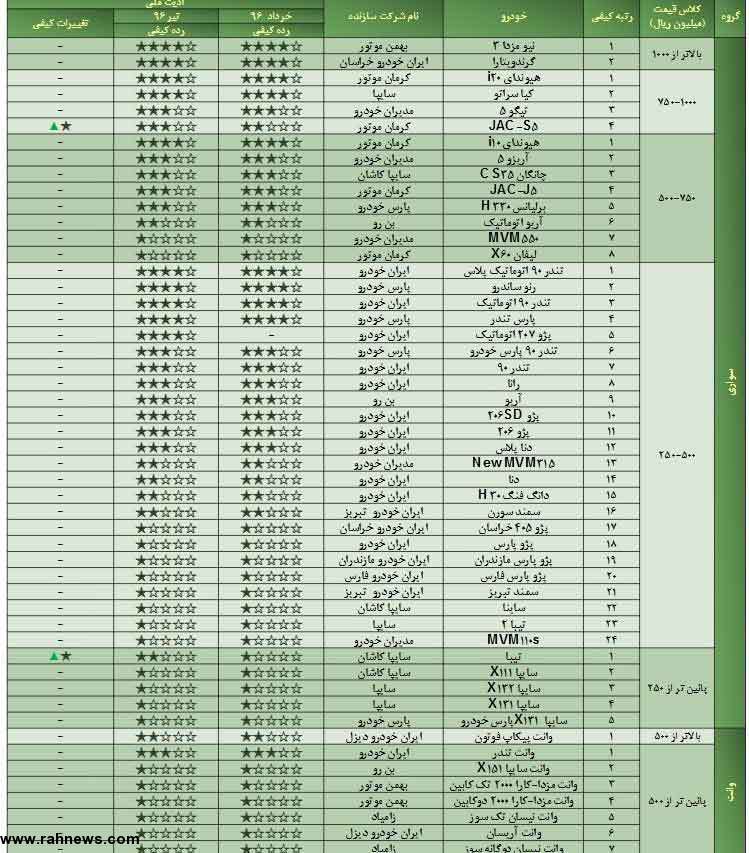 ادیت ملی
گروه کلاس قیمت (میلیون ریال) رتبه کیفی خودرو نام شرکت سازنده خرداد ۹۶ تیر ۹۶ تغییرات کیفی
رده کیفی رده کیفی
سواری
بالاتر از ۱۰۰۰
۱ نیو مزدا ۳ بهمن موتور ★★★★☆ ★★★★☆ -
۲ گرندویتارا ایران خودرو خراسان ★★★★☆ ★★★★☆ -
۷۵۰-۱۰۰۰
۱ هیوندای i۲۰ کرمان موتور ★★★★☆ ★★★★☆ -
۲ کیا سراتو سایپا ★★★★☆ ★★★★☆ -
۳ تیگو ۵ مدیران خودرو ★★★☆☆ ★★★☆☆ -
۴ JAC -S۵ کرمان موتور ★★☆☆☆ ★★★☆☆ ▲★
۵۰۰-۷۵۰
۱ هیوندای i۱۰ کرمان موتور ★★★★☆ ★★★★☆ -
۲ آریزو ۵ مدیران خودرو ★★★☆☆ ★★★☆☆ -
۳ چانگان C S۳۵ سایپا کاشان ★★★☆☆ ★★★☆☆ -
۴ JAC -J۵ کرمان موتور ★★★☆☆ ★★★☆☆ -
۵ برلیانس H ۳۳۰ پارس خودرو ★★★☆☆ ★★★☆☆ -
۶ آریو اتوماتیک بن رو ★★☆☆☆ ★★☆☆☆ -
۷ MVM۵۵۰ مدیران خودرو ★☆☆☆☆ ★☆☆☆☆ -
۸ لیفان X۶۰ کرمان موتور ★☆☆☆☆ ★☆☆☆☆ -
۲۵۰-۵۰۰
۱ تندر ۹۰ اتوماتیک پلاس ایران خودرو ★★★★☆ ★★★★☆ -
۲ رنو ساندرو پارس خودرو ★★★★☆ ★★★★☆ -
۳ تندر ۹۰ اتوماتیک ایران خودرو ★★★★☆ ★★★★☆ -
۴ پارس تندر پارس خودرو ★★★★☆ ★★★★☆ -
۵ پژو ۲۰۷ اتوماتیک ایران خودرو - ★★★★☆ -
۶ تندر ۹۰ پارس خودرو پارس خودرو ★★★☆☆ ★★★☆☆ -
۷ تندر ۹۰ ایران خودرو ★★★☆☆ ★★★☆☆ -
۸ رانا ایران خودرو ★★★☆☆ ★★★☆☆ -
۹ آریو بن رو ★★★☆☆ ★★★☆☆ -
۱۰ پژو ۲۰۶SD ایران خودرو ★★★☆☆ ★★★☆☆ -
۱۱ پژو ۲۰۶ ایران خودرو ★★★☆☆ ★★★☆☆ -
۱۲ دنا پلاس ایران خودرو ★★★☆☆ ★★★☆☆ -
۱۳ New MVM۳۱۵ مدیران خودرو ★★☆☆☆ ★★☆☆☆ -
۱۴ دنا ایران خودرو ★★☆☆☆ ★★☆☆☆ -
۱۵ دانگ فنگ H ۳۰ ایران خودرو ★★☆☆☆ ★★☆☆☆ -
۱۶ سمند سورن ایران خودرو تبریز ★★☆☆☆ ★★☆☆☆ -
۱۷ پژو ۴۰۵ خراسان ایران خودرو خراسان ★☆☆☆☆ ★☆☆☆☆ -
۱۸ پژو پارس ایران خودرو ★☆☆☆☆ ★☆☆☆☆ -
۱۹ پژو پارس مازندران ایران خودرو مازندران ★☆☆☆☆ ★☆☆☆☆ -
۲۰ پژو پارس فارس ایران خودرو فارس ★☆☆☆☆ ★☆☆☆☆ -
۲۱ سمند تبریز ایران خودرو تبریز ★☆☆☆☆ ★☆☆☆☆ -
۲۲ ساینا سایپا کاشان ★☆☆☆☆ ★☆☆☆☆ -
۲۳ تیبا ۲ سایپا ★☆☆☆☆ ★☆☆☆☆ -
۲۴ MVM۱۱۰s مدیران خودرو ★☆☆☆☆ ★☆☆☆☆ -
پائین تر از ۲۵۰
۱ تیبا سایپا کاشان ★☆☆☆☆ ★★☆☆☆ ▲★
۲ سایپا X۱۱۱ سایپا کاشان ★☆☆☆☆ ★☆☆☆☆ -
۳ سایپا X۱۳۲ سایپا ★☆☆☆☆ ★☆☆☆☆ -
۴ سایپا X۱۳۱ سایپا ★☆☆☆☆ ★☆☆☆☆ -
۵ سایپا X۱۳۱پارس خودرو پارس خودرو ★☆☆☆☆ ★☆☆☆☆ -
وانت
بالاتر از ۵۰۰
۱ وانت پیکاپ فوتون ایران خودرو دیزل ★★☆☆☆ ★★☆☆☆ -
پائین تر از ۵۰۰
۱ وانت تندر ایران خودرو ★★★☆☆ ★★★☆☆ -
۲ وانت سایپا X۱۵۱ بن رو ★☆☆☆☆ ★☆☆☆☆ -
۳ وانت مزدا-کارا ۲۰۰۰ تک کابین بهمن موتور ★☆☆☆☆ ★☆☆☆☆ -
۴ وانت مزدا-کارا ۲۰۰۰ دوکابین بهمن موتور ★☆☆☆☆ ★☆☆☆☆ -
۵ وانت نیسان تک سوز زامیاد ★☆☆☆☆ ★☆☆☆☆ -
۶ وانت آریسان ایران خودرو دیزل ★☆☆☆☆ ★☆☆☆☆ -
۷ وانت نیسان دوگانه سوز زامیاد ★☆☆☆☆ ★☆☆☆☆ -
www.rahnews.com